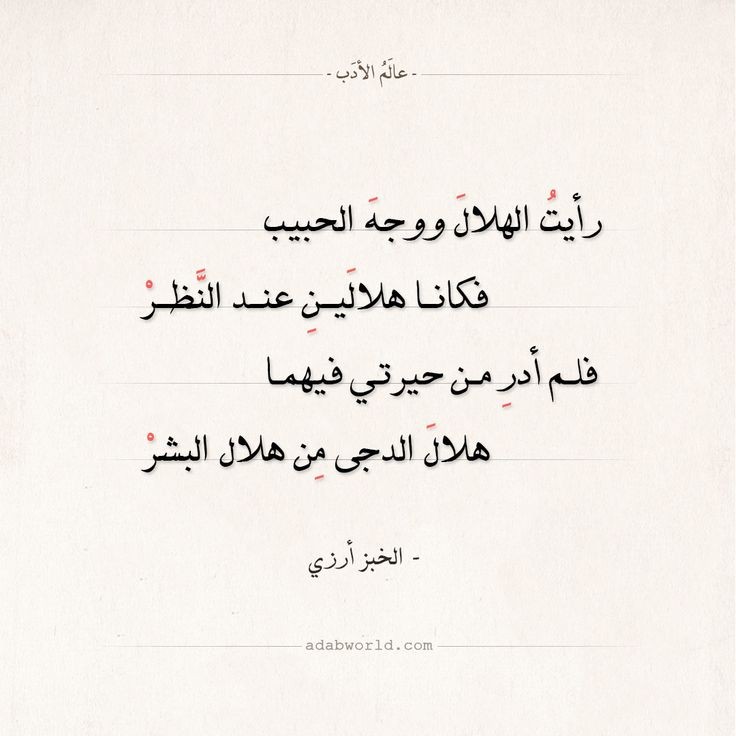 - عالَمُ الأدَب -
رأيتُ الهلالَ ووجهَ الحبيب
فكانـا هلالَيـنِ عنـد النَّظـرْ
فلـم أدرِ مـن حيرتـي فيهمـا
هلالَ الدجى مِن هلال البشرْ
- الخبز أرزي
adabworld.com